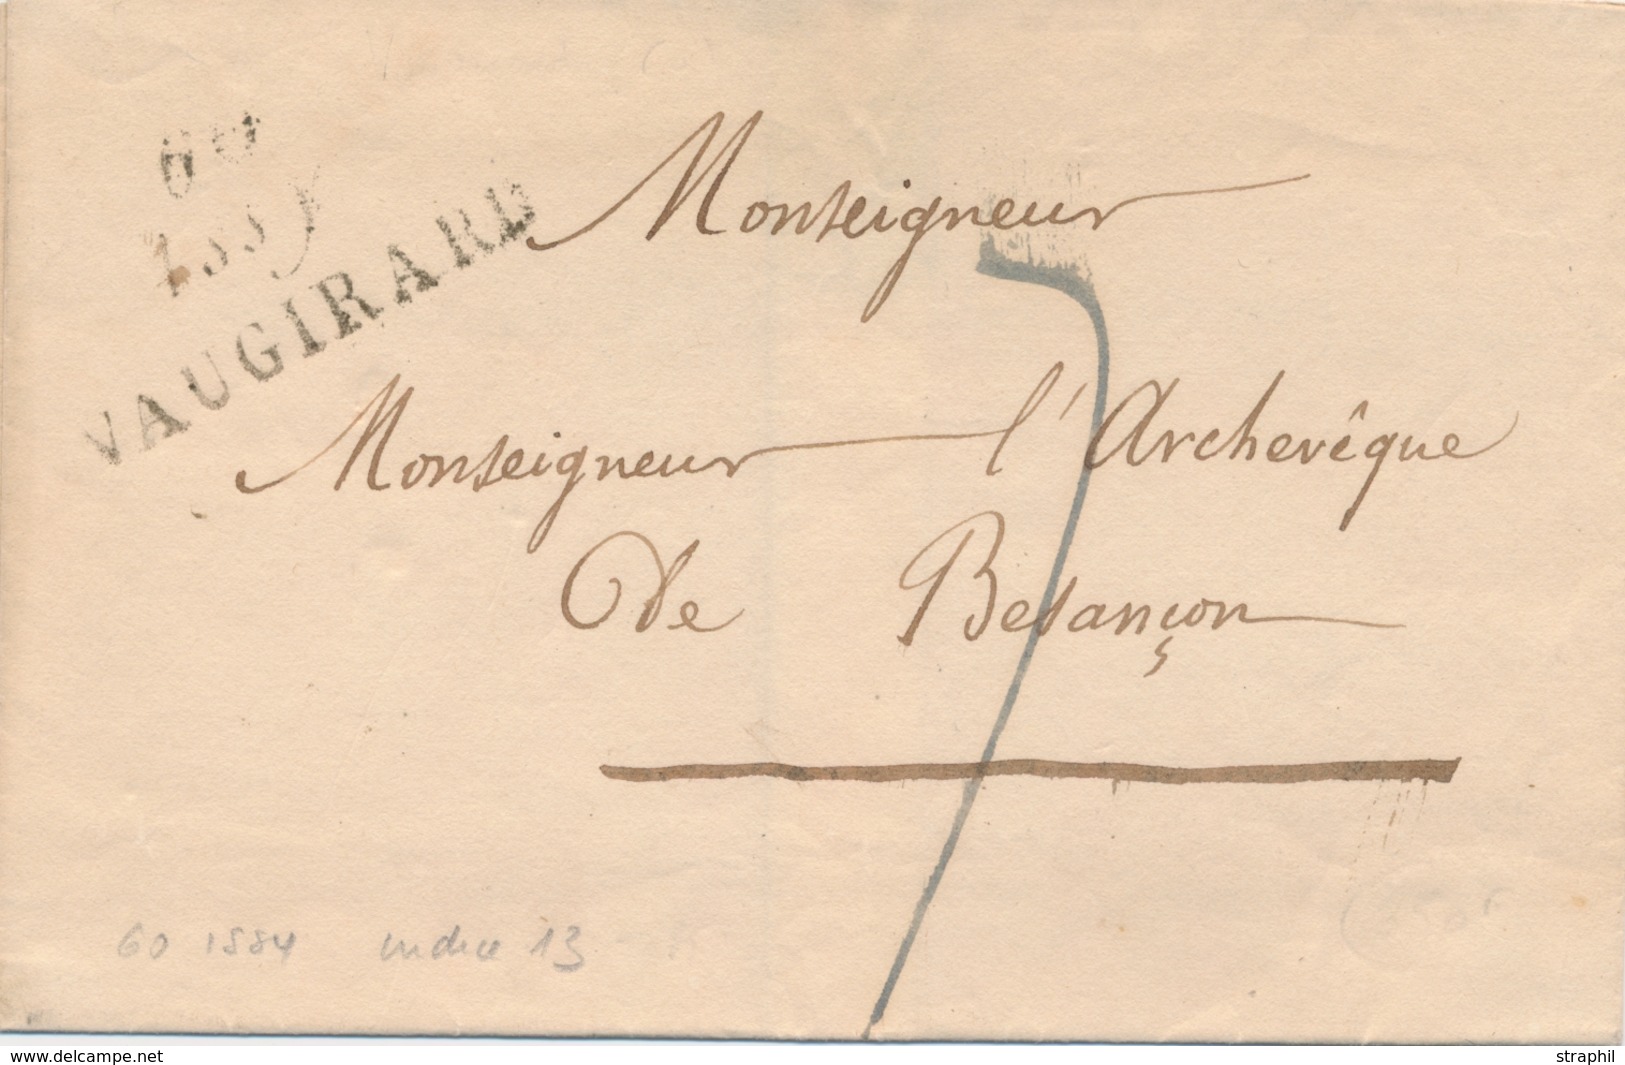 60
Issy
VAUGIRARD
Monseigneur
Monseigneur l'Archevêque
De Besançon
7
60 ISSY indice 13
www.delcampe.net
straphil